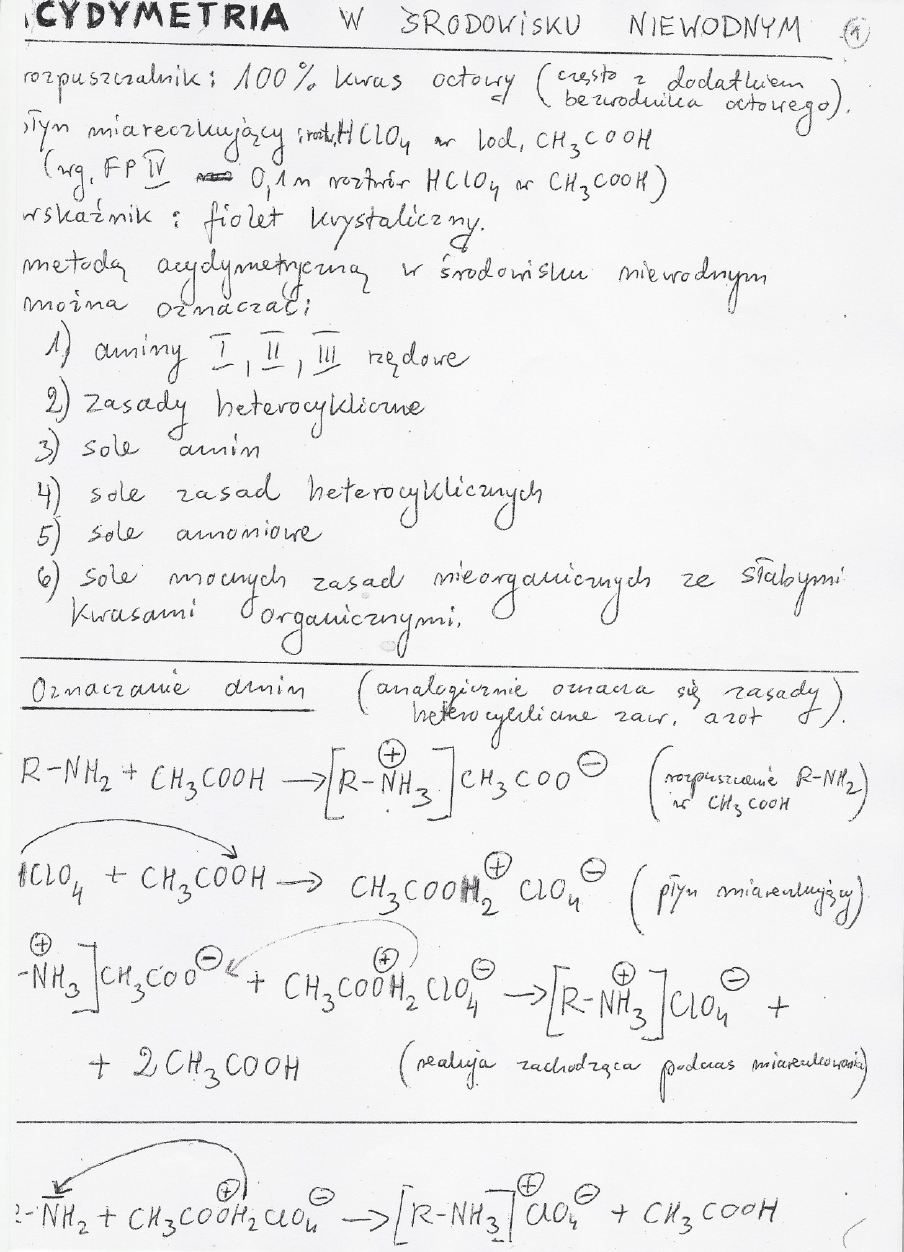 CYDYMETRIA W ŚRODOWISKU NIEWODNYM 1
rozpuszczalnik: 100% kwas octowy (często z dodatkiem
bezwodnika octowego).
płyn miareczkujący: roztw. HClO₄ w lod. CH₃COOH
(wg. FP IV 0,1 n roztwór HClO₄ w CH₃COOH)
wskaźnik: fiolet krystaliczny.
metodą acydymetryczną w środowisku niewodnym
można oznaczać:
1) aminy I, II, III rzędowe
2) zasady heterocykliczne
3) sole amin
4) sole zasad heterocyklicznych
5) sole amoniowe
6) sole mocnych zasad nieorganicznych ze słabymi
kwasami organicznymi.
Oznaczanie amin (analogicznie oznacza się zasady
heterocykliczne zaw. azot).
R-NH₂ + CH₃COOH → [R-NH₃]⊕ CH₃COO⊖ (rozpuszczenie R-NH₂
w CH₃COOH)
HClO₄ + CH₃COOH → CH₃COOH₂⊕ ClO₄⊖ (płyn miareczkujący)
-NH₃]⊕ CH₃COO⊖ + CH₃COOH₂⊕ ClO₄⊖ → [R-NH₃]⊕ ClO₄⊖ +
+ 2CH₃COOH (reakcja zachodząca podczas miareczkowania)
R-NH₂ + CH₃COOH₂⊕ ClO₄⊖ → [R-NH₃]⊕ ClO₄⊖ + CH₃COOH